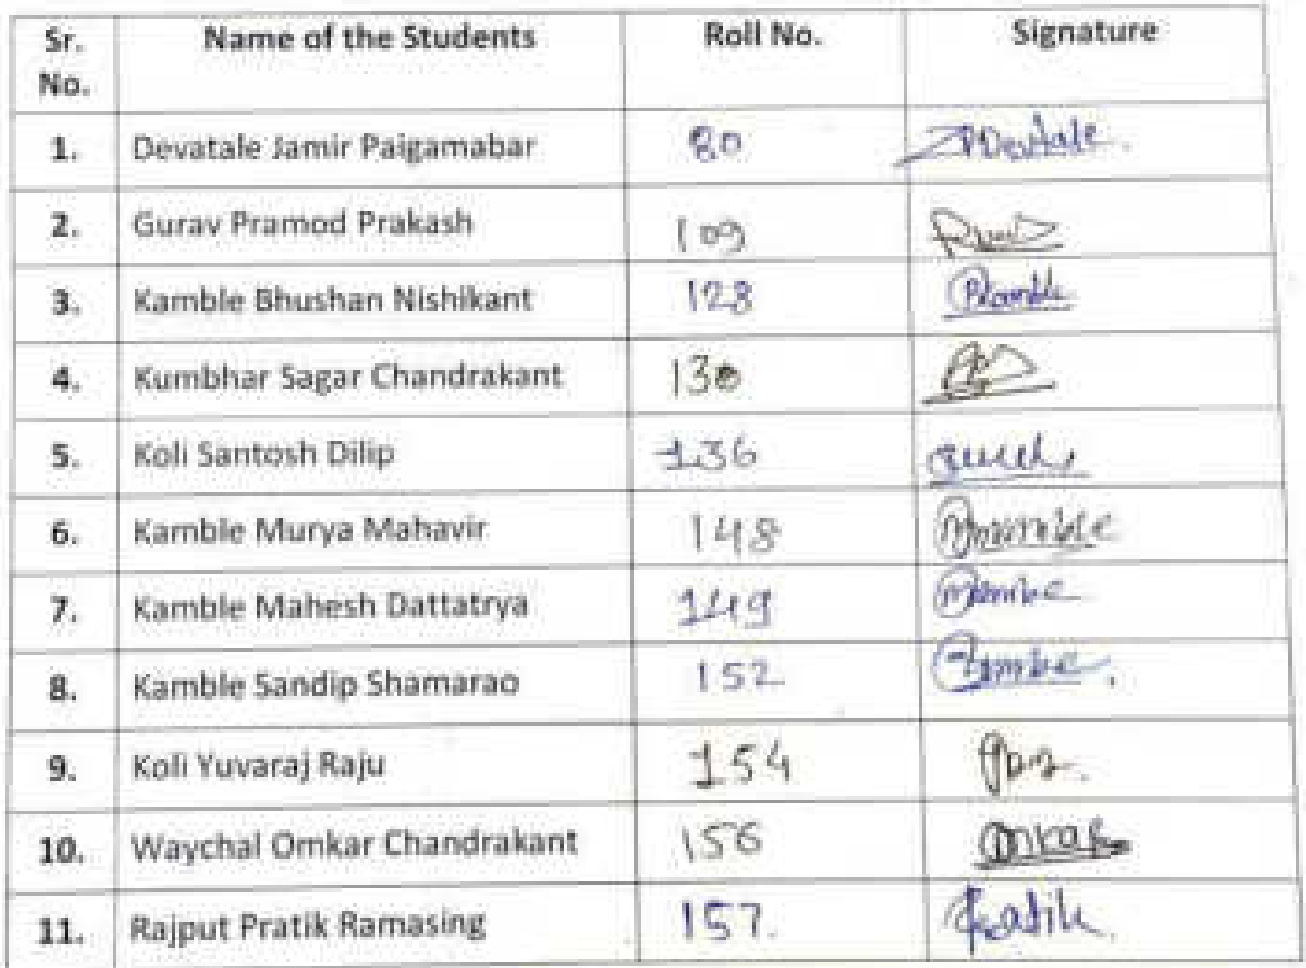 Sr. No. Name of the Students Roll No. Signature
1. Devatale Jamir Paigamabar 80 Devtale.
2. Gurav Pramod Prakash 109
3. Kamble Bhushan Nishikant 128
4. Kumbhar Sagar Chandrakant 130
5. Koli Santosh Dilip 136
6. Kamble Murya Mahavir 148
7. Kamble Mahesh Dattatrya 149
8. Kamble Sandip Shamarao 152
9. Koli Yuvaraj Raju 154
10. Waychal Omkar Chandrakant 156 Omkar
11. Rajput Pratik Ramasing 157. Pratik